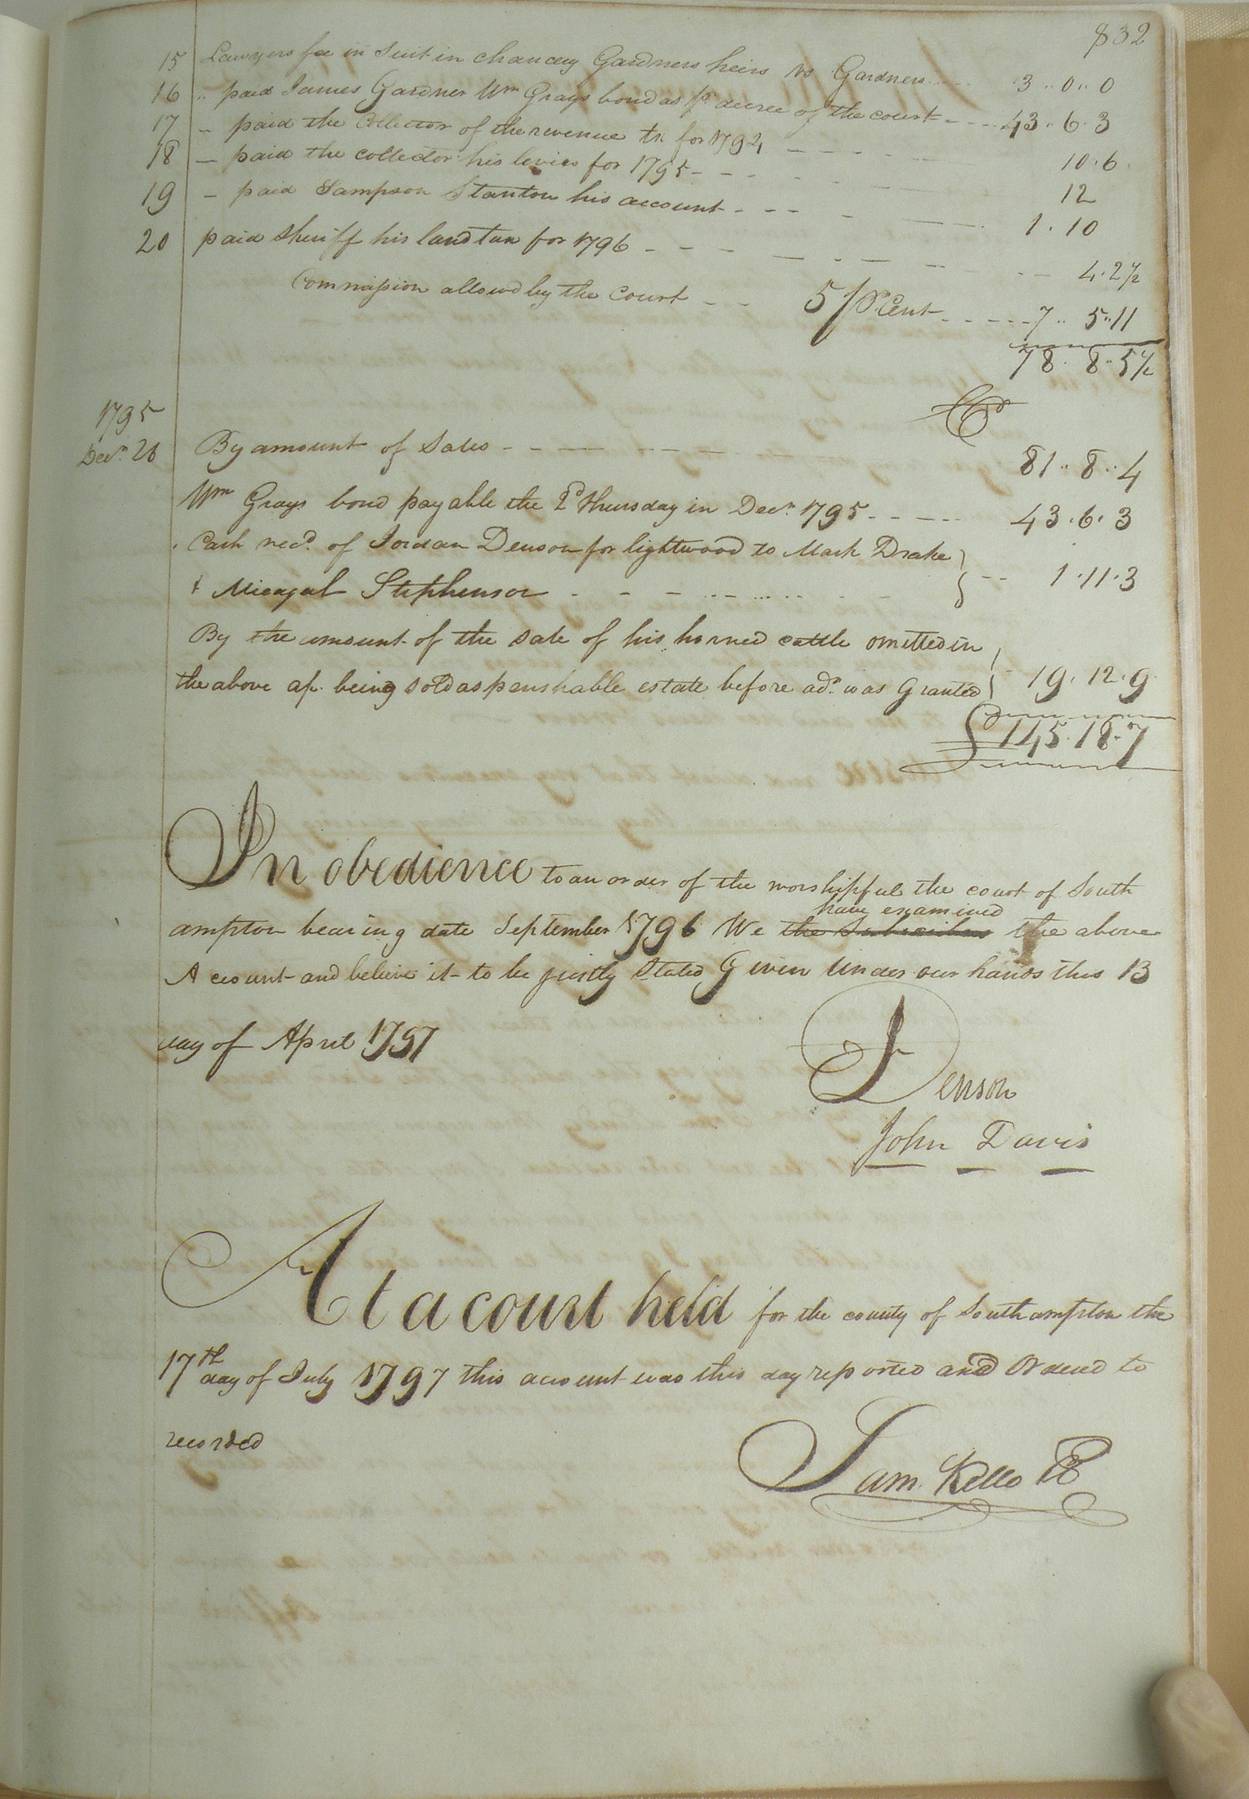 832
15 Lawyers fee in Suit in chancey Gardners heirs vs Gardners 3..0..0
16 .. paid James Gardner Wm Grays bond as pr decree of the court 43.6.3
17 - paid the Collector of the revenue tx for 1794 10.6
18 - paid the collector his levies for 1795 12
19 - paid Sampson Stanton his account 1.10
20 paid sheriff his land tax for 1796 4.2½
Commission allowd by the Court 5 pr Cent 7..5..11
78.8.5½
Cr
1795
Decr. 26 By amount of Sales 81..8..4
Wm Grays bond payable the 2d Thursday in Decr. 1795 43.6.3
Cash recd. of Jordan Denson for lightwood to Mark Drake
& Micagah Stephenson 1.11.3
By the amount of the sale of his horned cattle omitted in
the above ap. being sold as perishable estate before ad. was Granted 19.12.9
£145.18.7
In obedience to an order of the worshipful the court of South
ampton bearing date September 1796 We the Subscribers have examined the above
Account and believe it to be justly Stated Given Under our hands this 13
day of April 1797
J Denson
John Davis
At a court held for the county of Southampton the
17th day of July 1797 this account was this day reported and Ordered to
recorded
Sam. Kello CC